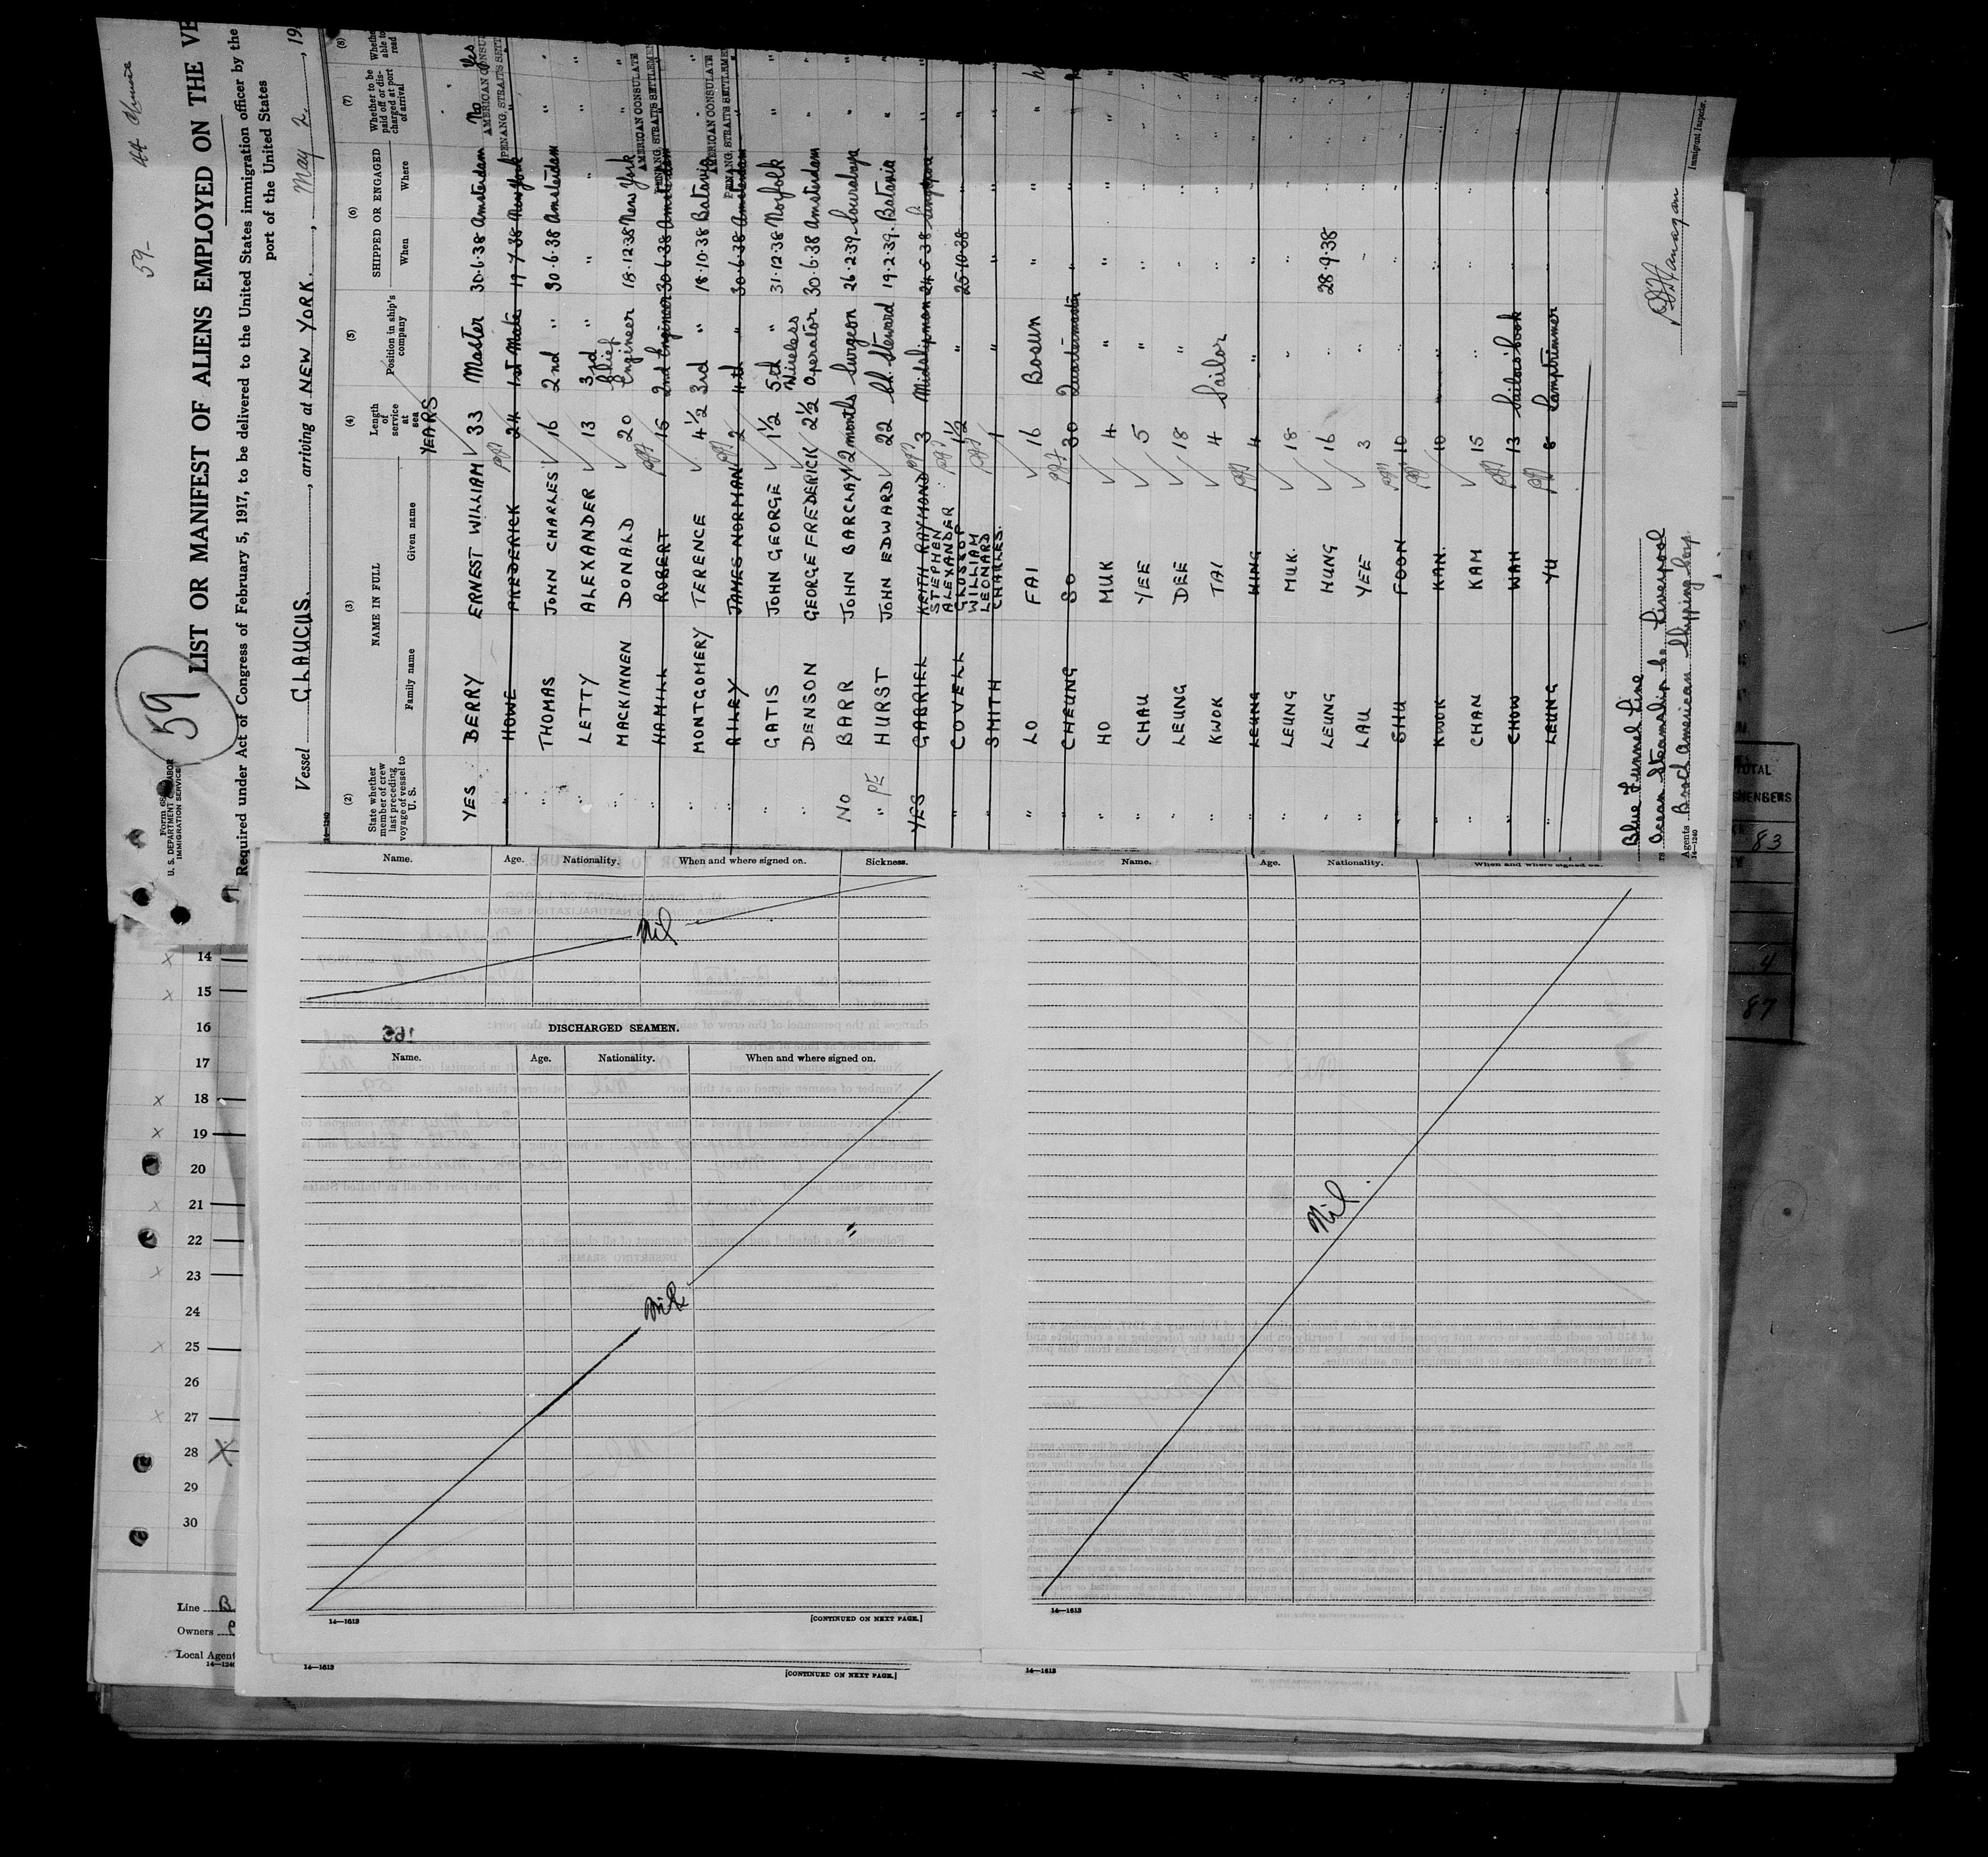 59- 44 Chinese
59
Form 68
U. S. DEPARTMENT OF LABOR
IMMIGRATION SERVICE
LIST OR MANIFEST OF ALIENS EMPLOYED ON THE VE
Required under Act of Congress of February 5, 1917, to be delivered to the United States immigration officer by the
port of the United States
Vessel GLAUCUS, arriving at NEW YORK, May 2, 19
14-1240
(2) (3) (4) (5) (6) (7) (8)
State whether member of crew last preceding voyage of vessel to U. S.
NAME IN FULL
Family name Given name
Length of service at sea
YEARS
Position in ship's company
SHIPPED OR ENGAGED
When Where
Whether to be paid off or discharged at port of arrival
Whether able to read
YES BERRY ERNEST WILLIAM 33 Master 30.6.38 Amsterdam No Yes
" HOWE FREDERICK 24 1st Mate 19.7.38 New York "
AMERICAN CONSU
PENANG, STRAITS SETT
" THOMAS JOHN CHARLES 16 2nd " 30.6.38 Amsterdam "
" LETTY ALEXANDER 13 3rd " " " "
" MACKINNEN DONALD 20 Chief Engineer 18.12.38 New York "
AMERICAN CONSULATE
PENANG, STRAITS SETTLEMEN
" HAMILL ROBERT 15 2nd Engineer 30.6.38 Amsterdam
" MONTGOMERY TERENCE 4½ 3rd " 18.10.38 Batavia "
AMERICAN CONSULATE
PENANG, STRAITS SETTLEME
" RILEY JAMES NORMAN 2 4th " 30.6.38 Amsterdam
" GATIS JOHN GEORGE 1½ 5th " 31.12.38 Norfolk "
" DENSON GEORGE FREDERICK 2½ Wireless Operator 30.6.38 Amsterdam "
NO BARR JOHN BARCLAY 2 months Surgeon 26.2.39 Sourabaya "
" HURST JOHN EDWARD 22 Ch. Steward 19.2.39 Batavia "
YES GABRIEL KEITH RAYMOND 3 Midshipman 24.6.38 Singapore "
" COVELL STEPHEN ALEXANDER GLOSSOP 1½ " 25.10.38 " "
" SMITH WILLIAM LEONARD CHARLES. 1 " " " "
" LO FAI 16 Bosun " " "
" CHEUNG SO 30 Quartermaster " " "
" HO MUK 4 " " " "
" CHAU YEE 5 " " " "
" LEUNG DEE 18 " " " "
" KWOK TAI 4 Sailor " " "
" LEUNG WING 4 " " " "
" LEUNG MUK. 18 " " " "
" LEUNG HUNG 16 " 28.9.38 " "
" LAU YEE 3 " " " "
" SHU FOON 10 " " " "
" KWOK KAN. 10 " " " "
" CHAN KAM 15 " " " "
" CHOW WAH 13 Sailors Cook " " "
" LEUNG YU 8 Lamptrimmer " " "
Blue Funnel Line
Ocean Steamship Co. Liverpool
Agents Broch American Shipping Corp.
14-1240
Immigrant Inspector.
TOTAL
83
4
87
14
15
16
17
18
19
20
21
22
23
24
25
26
27
28
29
30
Line B
Owners
Local Agent
14-124
Name. Age. Nationality. When and where signed on. Sickness.
Nil
DISCHARGED SEAMEN.
Name. Age. Nationality. When and where signed on.
Nil
14-1613 [CONTINUED ON NEXT PAGE.]
14-1613 [CONTINUED ON NEXT PAGE.]
Name. Age. Nationality. When and where signed on.
Nil
14-1613
14-1613